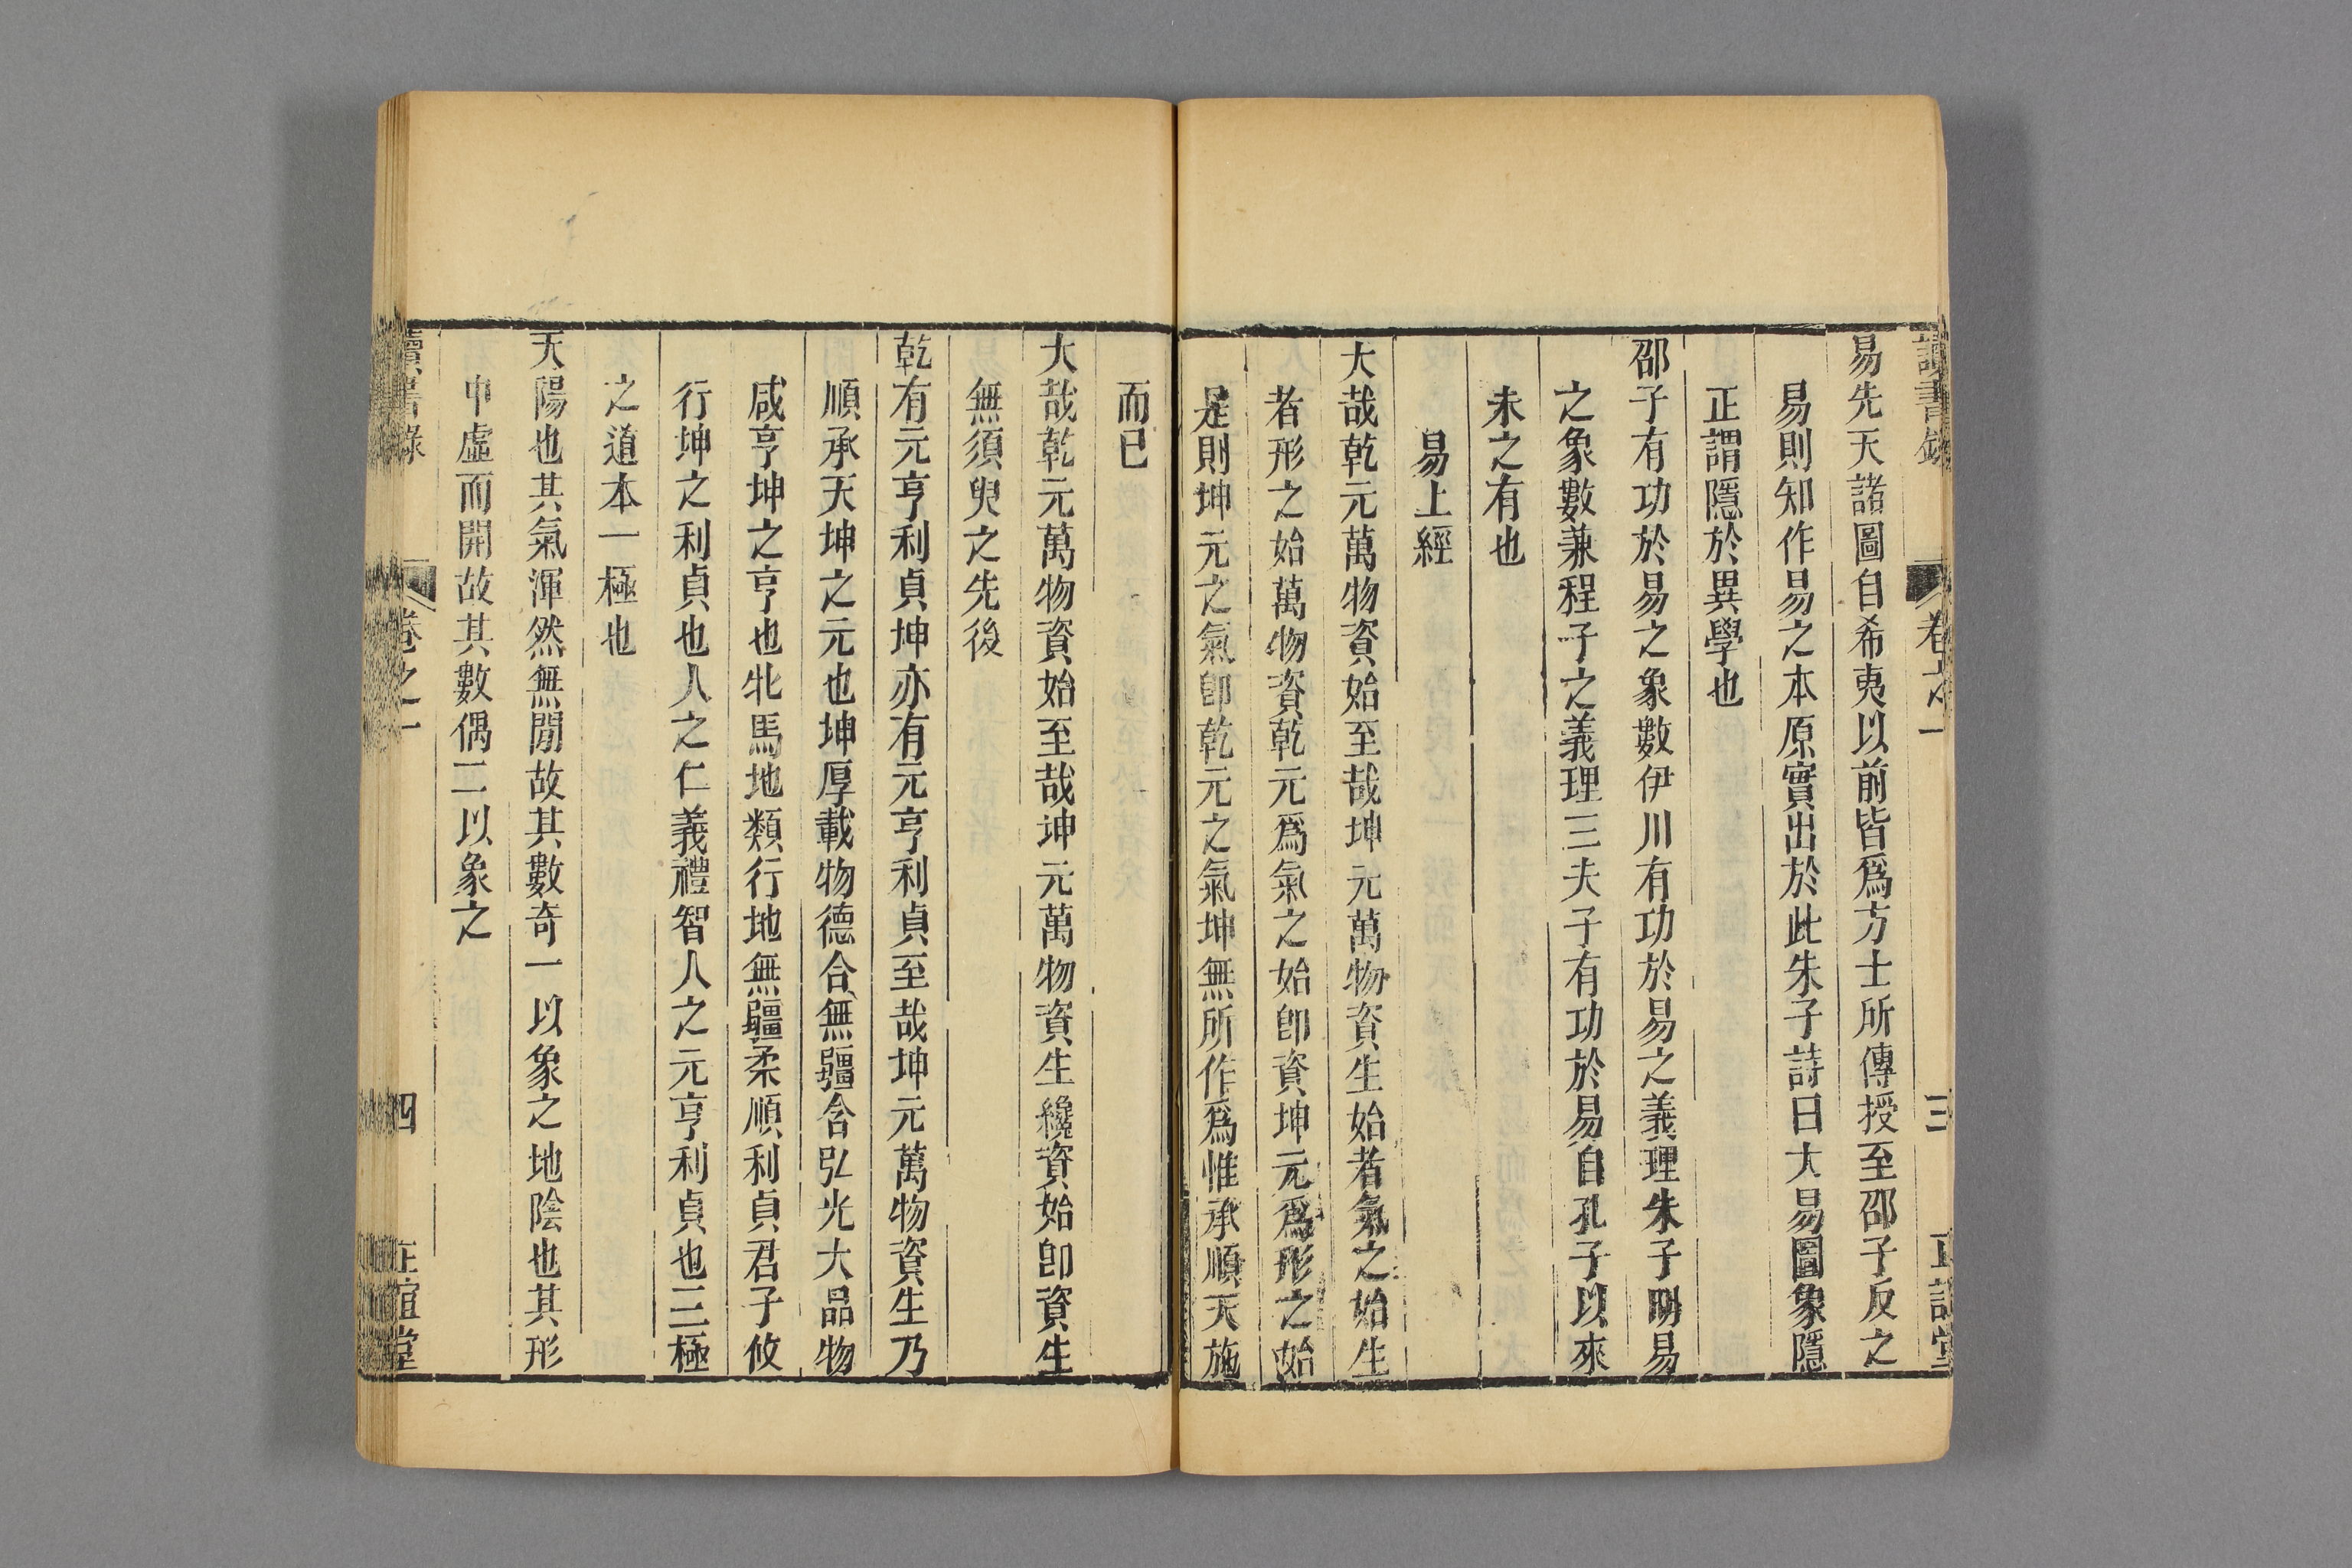 讀書錄 卷之一 三 正誼堂
易先天諸圖自希夷以前皆爲方士所傳授至邵子反之
易則知作易之本原實出於此朱子詩曰大易圖象隱
正謂隱於異學也
邵子有功於易之象數伊川有功於易之義理朱子明易
之象數兼程子之義理三夫子有功於易自孔子以來
未之有也
易上經
大哉乾元萬物資始至哉坤元萬物資生始者氣之始生
者形之始萬物資乾元爲氣之始卽資坤元爲形之始
是則坤元之氣卽乾元之氣坤無所作爲惟承順天施
而已
大哉乾元萬物資始至哉坤元萬物資生纔資始卽資生
無須臾之先後
乾有元亨利貞坤亦有元亨利貞至哉坤元萬物資生乃
順承天坤之元也坤厚載物德合無疆含弘光大品物
咸亨坤之亨也牝馬地類行地無疆柔順利貞君子攸
行坤之利貞也人之仁義禮智人之元亨利貞也三極
之道本一極也
天陽也其氣渾然無閒故其數奇一以象之地陰也其形
中虛而開故其數偶二以象之
讀書錄 卷之一 四 正誼堂